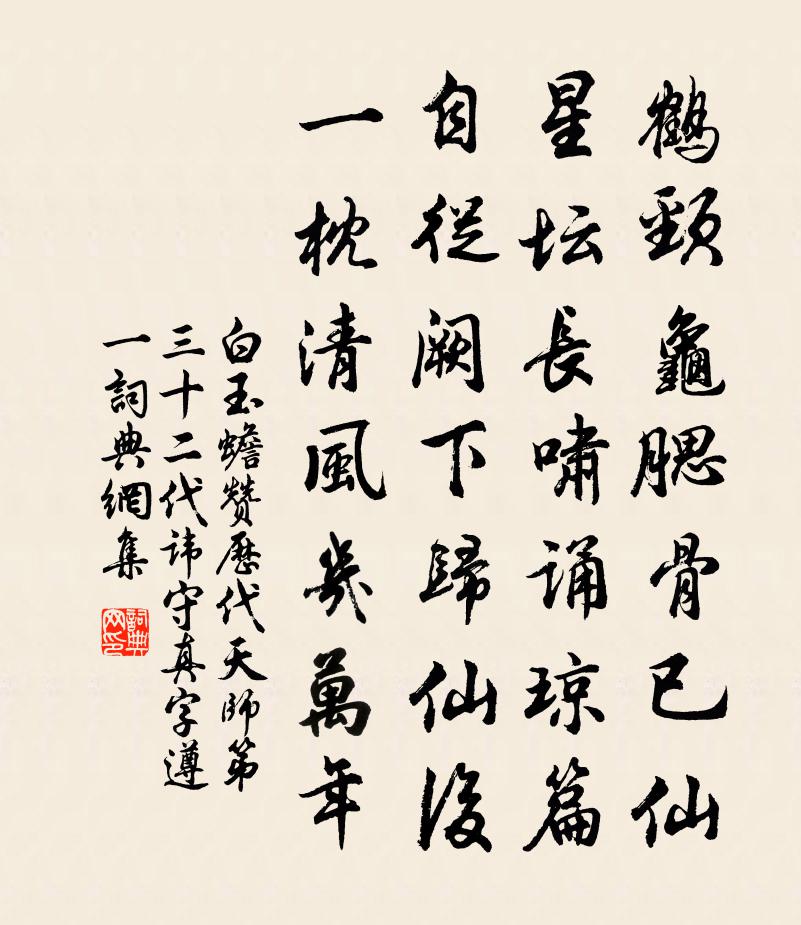 鶴頸龜腮骨已仙
星坛長嘯诵琼篇
自從阙下歸仙後
一枕清風幾萬年
白玉蟾赞歷代天師第
三十二代讳守真字遵
一詞典網集
詞典
网印